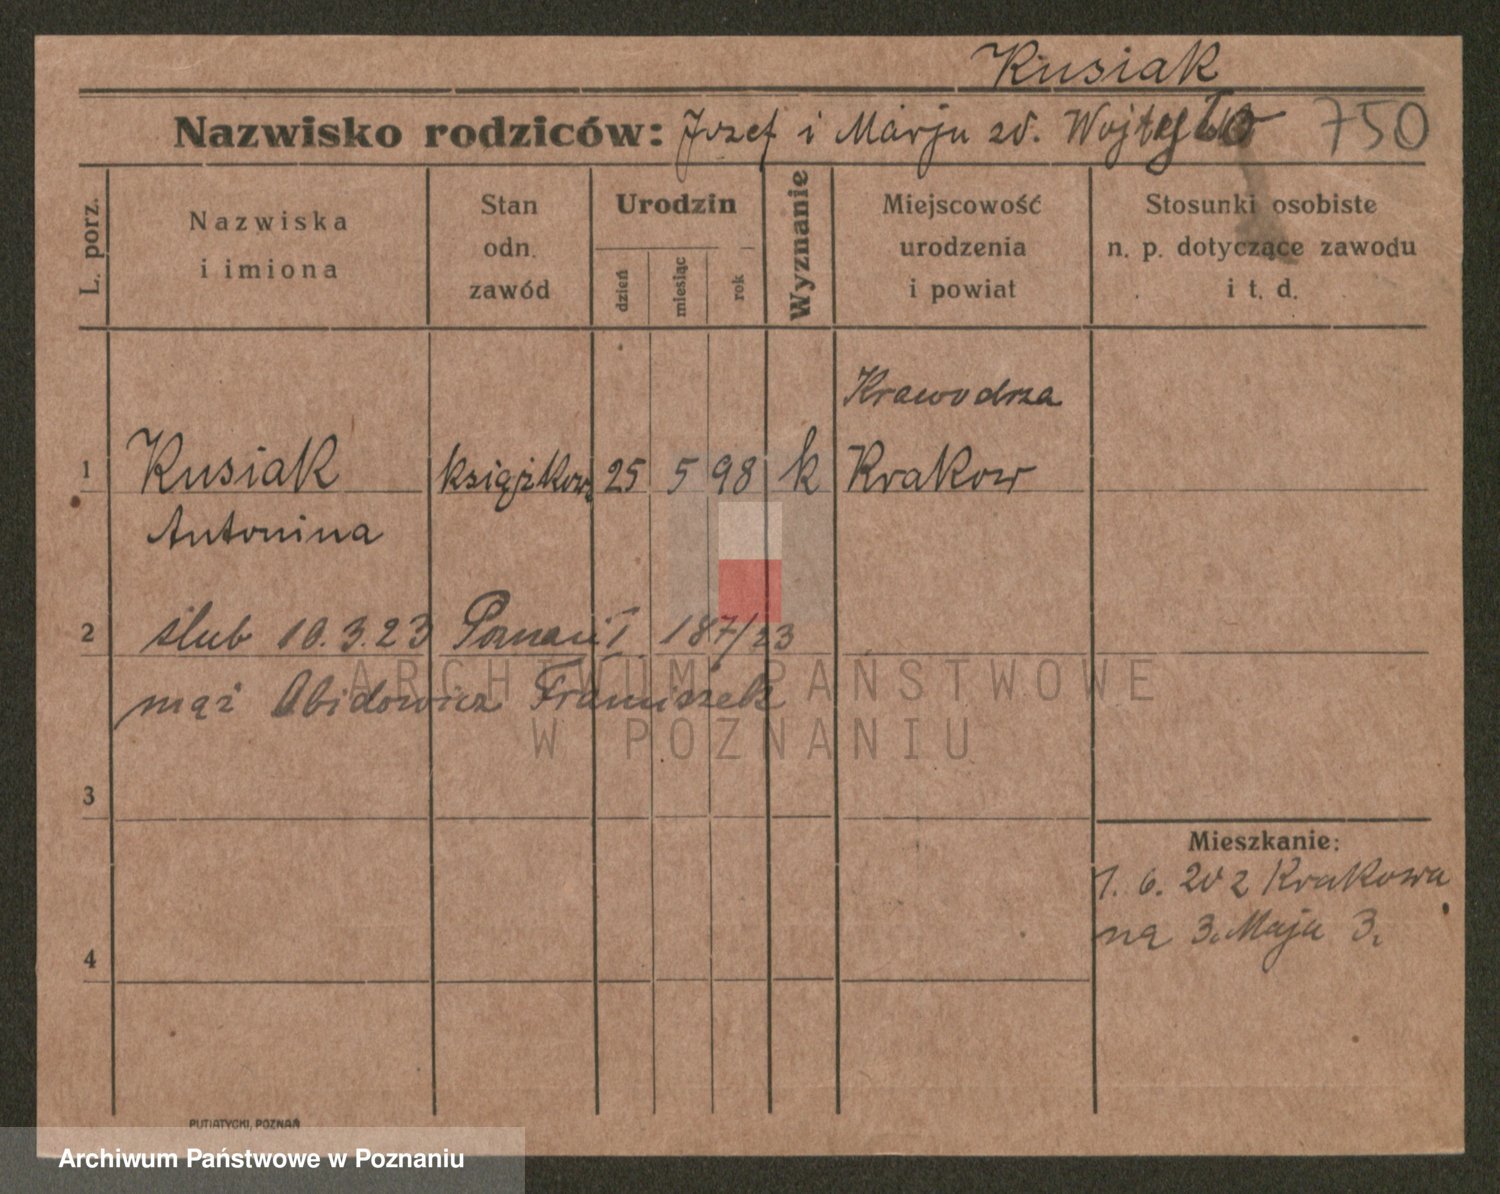 Kusiak
Nazwisko rodziców: Jozef i Marju zd. Wojtyło 750
L. porz.
Nazwiska
i imiona
Stan
odn.
zawód
Urodzin
dzień
miesiąc
rok
Wyznanie
Miejscowość
urodzenia
i powiat
Stosunki osobiste
n. p. dotyczące zawodu
i t. d.
Krawodrza
1 Kusiak książkowa 25 5 98 k Krakow
Antonina
2 ślub 10.3.23 Poznań I 187/23
mąż Abidowicz Franiszek
ARCHIWUM PAŃSTWOWE
W POZNANIU
3
Mieszkanie:
1. 6. 20 z Krakowa
na 3. Maja 3.
4
PUTIATYCKI, POZNAŃ
Archiwum Państwowe w Poznaniu